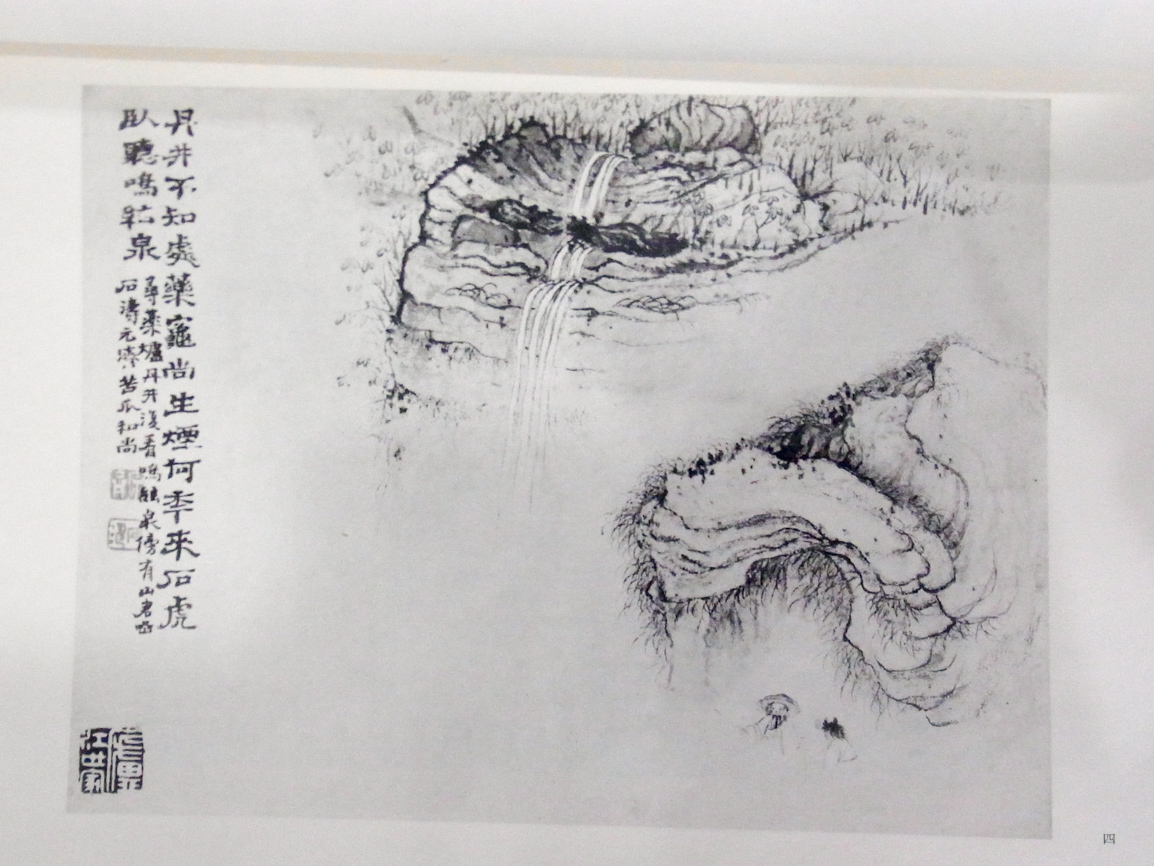 丹井不知處藥竈尚生煙何秊來石虎
臥聽鳴弦泉
尋藥爐丹井後看鳴弦泉傍有山君
石濤元濟苦瓜和尚
四